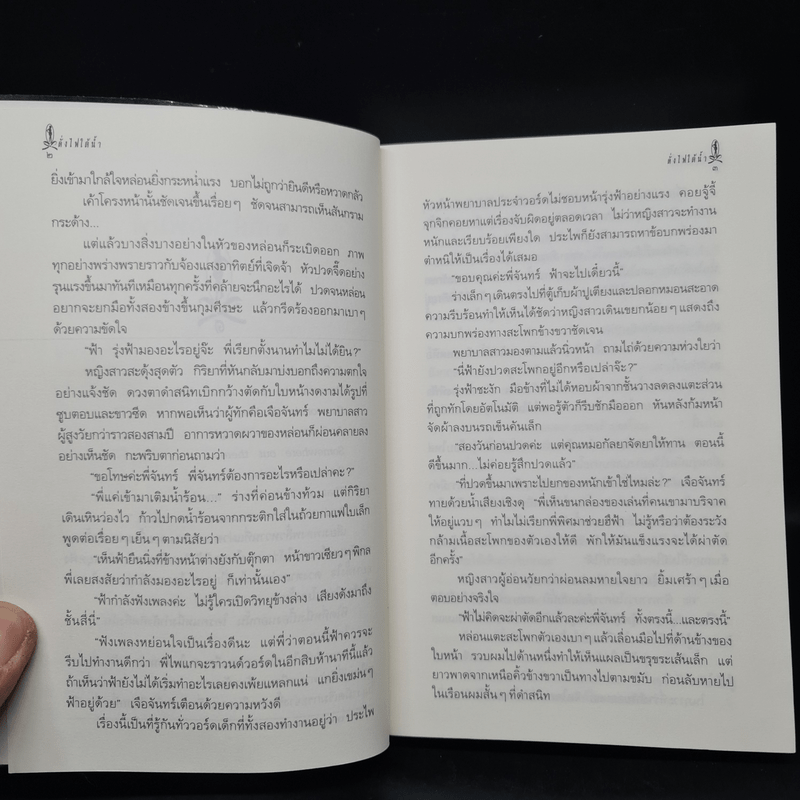 ดั่งไฟใต้น้ำ
๒
ยิ่งเข้ามาใกล้ใจหล่อนยิ่งกระหน่ำแรง บอกไม่ถูกว่ายินดีหรือหวาดกลัว
เค้าโครงหน้านั้นชัดเจนขึ้นเรื่อยๆ ชัดจนสามารถเห็นสันกราม
กระด้าง...
แต่แล้วบางสิ่งบางอย่างในหัวของหล่อนก็ระเบิดออก ภาพ
ทุกอย่างพร่างพรายราวกับจ้องแสงอาทิตย์ที่เจิดจ้า หัวปวดจี๊ดอย่าง
รุนแรงขึ้นมาทันทีเหมือนทุกครั้งที่คล้ายจะนึกอะไรได้ ปวดจนหล่อน
อยากจะยกมือทั้งสองข้างขึ้นกุมศีรษะ แล้วกรีดร้องออกมาเบาๆ
ด้วยความขัดใจ
“ฟ้า รุ่งฟ้ามองอะไรอยู่จ๊ะ พี่เรียกตั้งนานทำไมไม่ได้ยิน?”
หญิงสาวสะดุ้งสุดตัว กิริยาที่หันกลับมาบ่งบอกถึงความตกใจ
อย่างแจ้งชัด ดวงตาดำสนิทเบิกกว้างตัดกับใบหน้างดงามได้รูปที่
ซูบตอบและขาวซีด หากพอเห็นว่าผู้ทักคือเจือจันทร์ พยาบาลสาว
ผู้สูงวัยกว่าราวสองสามปี อาการหวาดผวาของหล่อนก็ผ่อนคลายลง
อย่างเห็นชัด กะพริบตาก่อนถามว่า
“ขอโทษค่ะพี่จันทร์ พี่จันทร์ต้องการอะไรหรือเปล่าคะ?”
“พี่แค่เข้ามาเติมน้ำร้อน...” ร่างที่ค่อนข้างท้วม แต่กิริยา
เดินเหินว่องไว ก้าวไปกดน้ำร้อนจากกระติกใส่ในถ้วยกาแฟใบเล็ก
พูดต่อเรื่อยๆ เย็นๆ ตามนิสัยว่า
“เห็นฟ้ายืนนิ่งที่ข้างหน้าต่างยังกับตุ๊กตา หน้าขาวเซียวๆ พิกล
พี่เลยสงสัยว่ากำลังมองอะไรอยู่ ก็เท่านั้นเอง”
“ฟ้ากำลังฟังเพลงค่ะ ไม่รู้ใครเปิดวิทยุข้างล่าง เสียงดังมาถึง
ชั้นสี่นี่”
“ฟังเพลงหย่อนใจเป็นเรื่องดีนะ แต่พี่ว่าตอนนี้ฟ้าควรจะ
รีบไปทำงานดีกว่า พี่ไพแกจะราวนด์วอร์ดในอีกสิบห้านาทีนี้แล้ว
ถ้าเห็นว่าฟ้ายังไม่ได้เริ่มทำอะไรเลยคงเพ้ยแหลกแน่ แกยิ่งเขม่นๆ
ฟ้าอยู่ด้วย” เจือจันทร์เตือนด้วยความหวังดี
เรื่องนี้เป็นที่รู้กันทั่ววอร์ดเด็กที่ทั้งสองทำงานอยู่ว่า ประไพ
ดั่งไฟใต้น้ำ
๓
หัวหน้าพยาบาลประจำวอร์ดไม่ชอบหน้ารุ่งฟ้าอย่างแรง คอยจู้จี้
จุกจิกคอยหาแต่เรื่องจับผิดอยู่ตลอดเวลา ไม่ว่าหญิงสาวจะทำงาน
หนักและเรียบร้อยเพียงใด ประไพก็ยังสามารถหาข้อบกพร่องมา
ตำหนิให้เป็นเรื่องได้เสมอ
“ขอบคุณค่ะพี่จันทร์ ฟ้าจะไปเดี๋ยวนี้”
ร่างเล็กๆ เดินตรงไปที่ตู้เก็บผ้าปูเตียงและปลอกหมอนสะอาด
ความรีบร้อนทำให้เห็นได้ชัดว่าหญิงสาวเดินเขยกน้อยๆ แสดงถึง
ความบกพร่องทางสะโพกข้างขวาชัดเจน
พยาบาลสาวมองตามแล้วนิ่วหน้า ถามไถ่ด้วยความห่วงใยว่า
“นี่ฟ้ายังปวดสะโพกอยู่อีกหรือเปล่าจ๊ะ?”
รุ่งฟ้าชะงัก มือข้างที่ไม่ได้หอบผ้าจากชั้นวางลดลงแตะส่วน
ที่ถูกทักโดยอัตโนมัติ แต่พอรู้ตัวก็รีบชักมือออก หันหลังก้มหน้า
จัดผ้าลงบนรถเข็นคันเล็ก
“สองวันก่อนปวดค่ะ แต่คุณหมอกัลยาจัดยาให้ทาน ตอนนี้
ดีขึ้นมาก...ไม่ค่อยรู้สึกปวดแล้ว”
“ที่ปวดขึ้นมาเพราะไปยกของหนักเข้าใช่ไหมล่ะ?” เจือจันทร์
ทายด้วยน้ำเสียงเชิงดุ “พี่เห็นขนกล่องของเล่นที่คนเขามาบริจาค
ให้อยู่แวบๆ ทำไมไม่เรียกพี่พิศมาช่วยฮึฟ้า ไม่รู้หรือว่าต้องระวัง
กล้ามเนื้อสะโพกของตัวเองให้ดี พักให้มันแข็งแรงจะได้ผ่าตัด
อีกครั้ง”
หญิงสาวผู้อ่อนวัยกว่าผ่อนลมหายใจยาว ยิ้มเศร้าๆ เมื่อ
ตอบอย่างจริงใจ
“ฟ้าไม่คิดจะผ่าตัดอีกแล้วละค่ะพี่จันทร์ ทั้งตรงนี้...และตรงนี้”
หล่อนแตะสะโพกตัวเองเบาๆ แล้วเลื่อนมือไปที่ด้านข้างของ
ใบหน้า รวบผมไปด้านหนึ่งทำให้เห็นแผลเป็นขรุขระเส้นเล็ก แต่
ยาวพาดจากเหนือคิ้วข้างขวาเป็นทางไปตามขมับ ก่อนลับหายไป
ในเรือนผมสั้นๆ ที่ดำสนิท